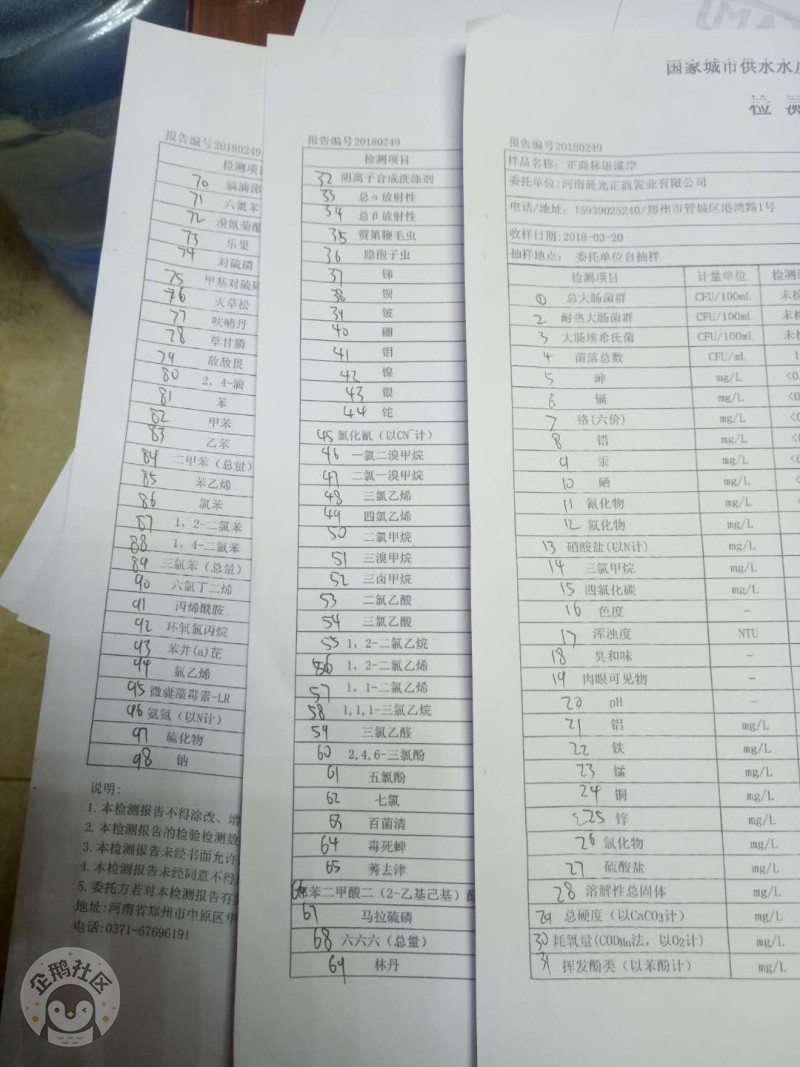 国家城市供水水
检 测
报告编号20180249
样品名称: 正商林语溪岸
委托单位:河南晨光正商置业有限公司
电话/地址: 15939025240/郑州市管城区港湾路1号
收样日期:2018-03-20
抽样地点: 委托单位自抽样
检测项目 计量单位 检测
① 总大肠菌群 CFU/100mL 未检
2 耐热大肠菌群 CFU/100mL 未检
3 大肠埃希氏菌 CFU/100mL 未检
4 菌落总数 CFU/mL 1
5 砷 mg/L <0
6 镉 mg/L <0
7 铬(六价) mg/L <0
8 铅 mg/L <0
9 汞 mg/L <0
10 硒 mg/L
11 氰化物 mg/L
12 氟化物 mg/L
13 硝酸盐(以N计) mg/L
14 三氯甲烷 mg/L
15 四氯化碳 mg/L
16 色度 -
17 浑浊度 NTU
18 臭和味 -
19 肉眼可见物 -
20 pH -
21 铝 mg/L
22 铁 mg/L
23 锰 mg/L
24 铜 mg/L
25 锌 mg/L
26 氯化物 mg/L
27 硫酸盐 mg/L
28 溶解性总固体 mg/L
29 总硬度(以CaCO3计) mg/L
30 耗氧量(CODMn法,以O2计) mg/L
31 挥发酚类(以苯酚计) mg/L
报告编号20180249
检测项目
32 阴离子合成洗涤剂
33 总α放射性
34 总β放射性
35 贾第鞭毛虫
36 隐孢子虫
37 锑
38 钡
39 铍
40 硼
41 钼
42 镍
43 银
44 铊
45 氯化氰(以CN-计)
46 一氯二溴甲烷
47 二氯一溴甲烷
48 三氯乙烯
49 四氯乙烯
50 二氯甲烷
51 三溴甲烷
52 三卤甲烷
53 二氯乙酸
54 三氯乙酸
55 1,2-二氯乙烷
56 1,2-二氯乙烯
57 1,1-二氯乙烯
58 1,1,1-三氯乙烷
59 三氯乙醛
60 2,4,6-三氯酚
61 五氯酚
62 七氯
63 百菌清
64 毒死蜱
65 莠去津
66 苯二甲酸二(2-乙基己基)
67 马拉硫磷
68 六六六(总量)
69 林丹
报告编号20180249
检测项
70 滴滴涕
71 六氯苯
72 溴氰菊酯
73 乐果
74 对硫磷
75 甲基对硫磷
76 灭草松
77 呋喃丹
78 草甘膦
79 敌敌畏
80 2,4-滴
81 苯
82 甲苯
83 乙苯
84 二甲苯(总量)
85 苯乙烯
86 氯苯
87 1,2-二氯苯
88 1,4-二氯苯
89 三氯苯(总量)
90 六氯丁二烯
91 丙烯酰胺
92 环氧氯丙烷
93 苯并(a)芘
94 氯乙烯
95 微囊藻毒素-LR
96 氨氮(以N计)
97 硫化物
98 钠
说明:
1. 本检测报告不得涂改、增
2. 本检测报告的检验检测数
3. 本检测报告未经书面允许
4. 本检测报告未经同意不得
5. 委托方若对本检测报告有
地址:河南省郑州市中原区
电话:0371-67696191
企鹅社区